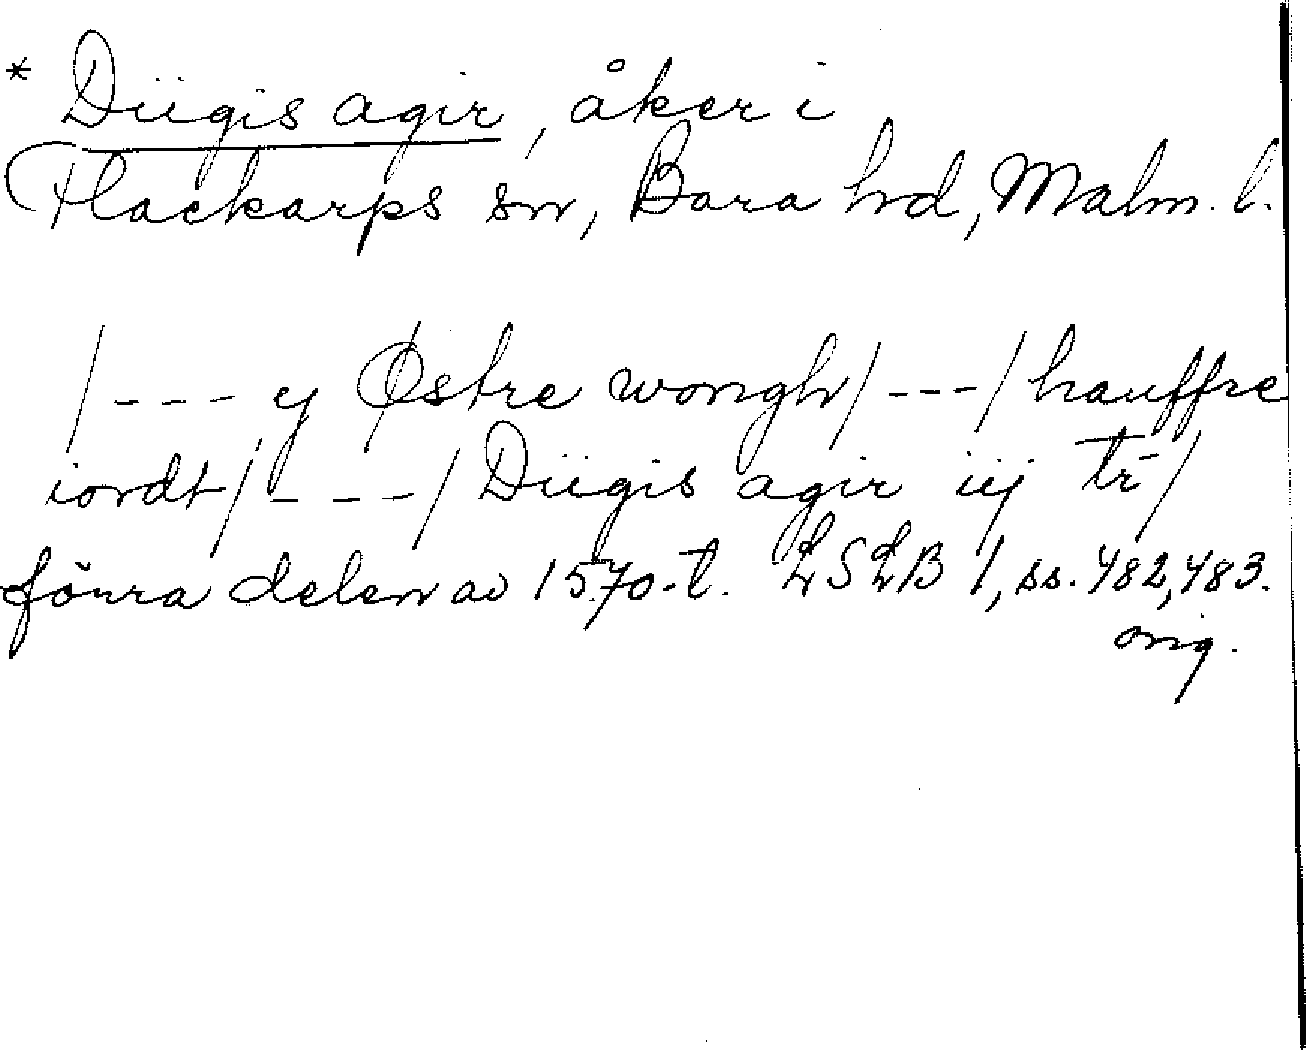 * Diigis agir, åker i
Flackarps sn, Bara hd, Malm. l.
/--- y Østre wongh/---/hauffre
iordt/---/Diigis agir iij tr/
förra delen av 1570-t. LSLB 1, ss. 482,483.
orig.